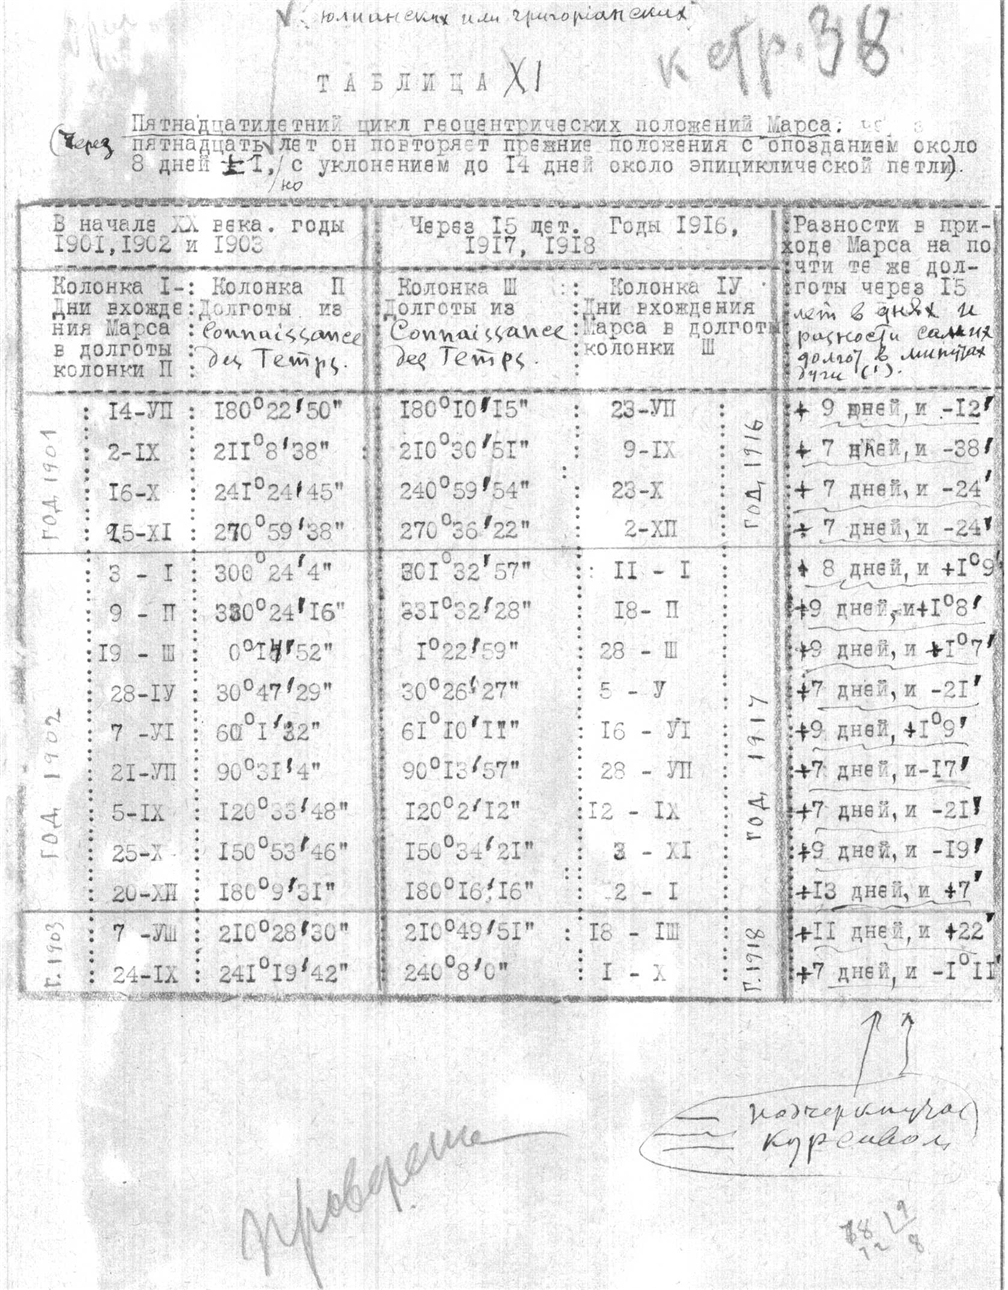 юлианских или григоріанских
к стр. 38.
ТАБЛИЦА XI
Пятнадцатилетний цикл геоцентрических положений Марса:
(Через пятнадцать лет он повторяет прежние положения с опозданием около
8 дней ±I, но с уклонением до I4 дней около эпициклической петли).
В начале XX века. годы
I90I, I902 и I903
Через I5 лет. Годы I9I6,
I9I7, I9I8
Разности в при-
ходе Марса на по
чти те же дол-
готы через I5
лет в днях и
разности самих
долгот в минутах
дуги (').
Колонка I-
Дни вхожде
ния Марса
в долготы
колонки П
Колонка П
Долготы из
Connaissance
des Temps.
Колонка Ш
Долготы из
Connaissance
des Temps.
Колонка IУ
Дни вхождения
Марса в долготы
колонки Ш
ГОД 1901
ГОД, 1916
I4-УП I80°22'50" I80°I0'I5" 23-УП + 9 дней, и -I2'
2-IX 2II°8'38" 2I0°30'5I" 9-IX + 7 дней, и -38'
I6-X 24I°24'45" 240°59'54" 23-X + 7 дней, и -24'
25-XI 270°59'38" 270°36'22" 2-XП + 7 дней, и -24'
ГОД, 1902
ГОД, 1917
3 - I 300°24'4" 30I°32'57" II - I + 8 дней, и +I°9'
9 - П 330°24'I6" 33I°32'28" I8- П +9 дней, и+I°8'
I9 - Ш 0°I4'52" I°22'59" 28 - Ш +9 дней, и +I°7'
28-IУ 30°47'29" 30°26'27" 5 - У +7 дней, и -2I'
7 -УI 60°I'32" 6I°I0'II" I6 - УI +9 дней, +I°9'
2I-УП 90°3I'4" 90°I3'57" 28 - УП +7 дней, и-I7'
5-IX I20°33'48" I20°2'I2" I2 - IX +7 дней, и -2I'
25-X I50°53'46" I50°34'2I" 3 - XI +9 дней, и -I9'
20-XП I80°9'3I" I80°I6'I6" 2 - I +I3 дней, и +7'
Г. 1903
Г. 1918
7 -УШ 2I0°28'30" 2I0°49'5I" I8 - IШ +II дней, и +22'
24-IX 24I°I9'42" 240°8'0" I - X +7 дней, и -I°II'
подчеркнутое
курсивом
Проверено